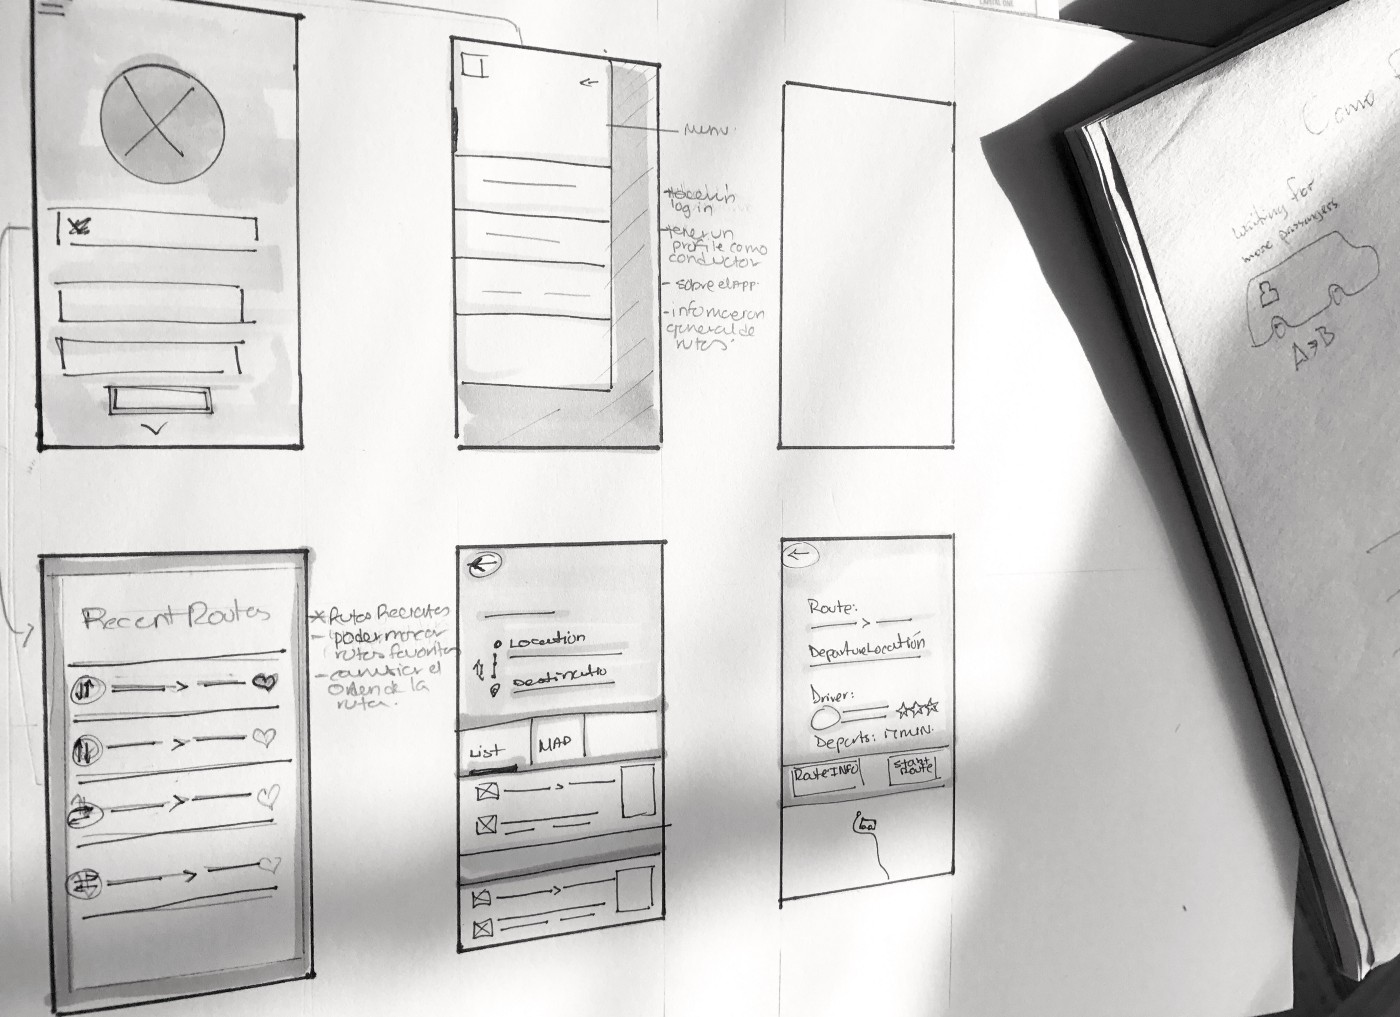 CAPITAL ONE
Menu.
log in
tener un
profile como
conductor
- sobre el APP.
- informacion
general de
rutas.
Recent Routes
* Rutas Recientes
- poder marcar
rutas favoritas
- cambiar el
Orden de la
ruta.
Location
Destinatio
List
MAP
Route:
Departure Location
Driver:
Departs: 17 MIN.
Route INFO
Start
Route
Como
waiting for
more passangers
A→B